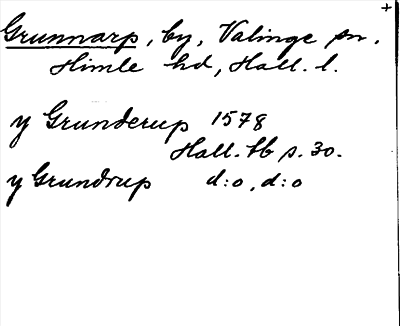 +
Grunnarp, by, Valinge sn.
Himle hd, Hall. l.
y Grunderup 1578
Hall. bb s. 30.
y Grundrup d:o, d:o